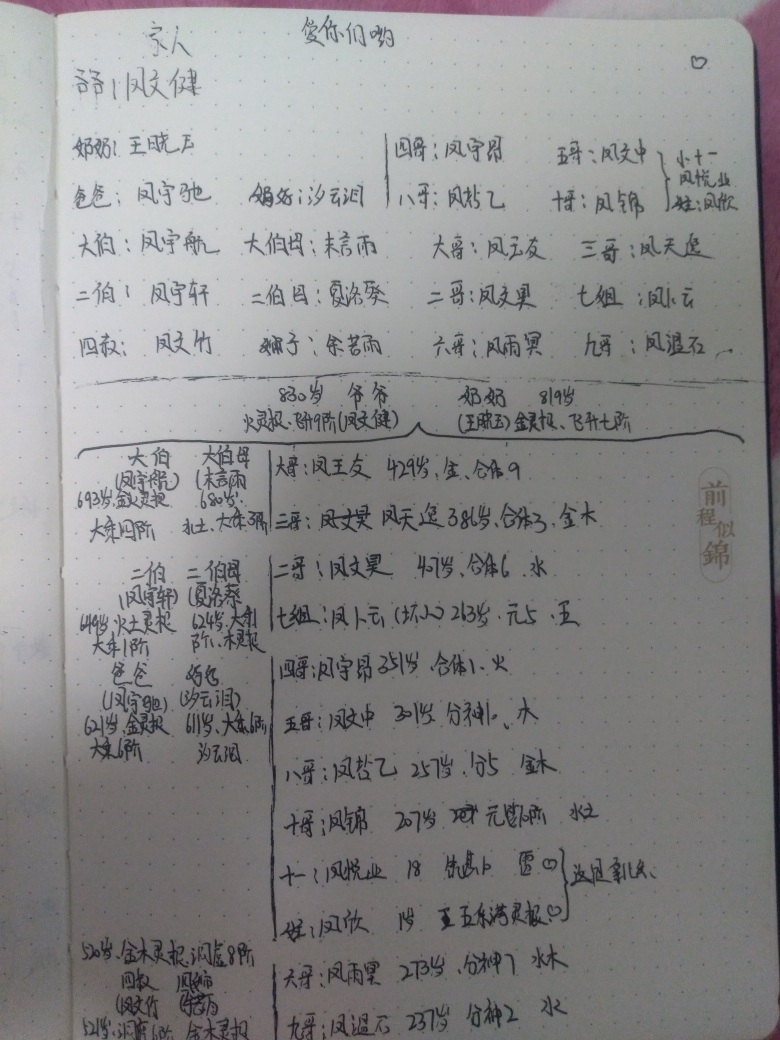 家人 爱你们哟
爷爷：凤文健
奶奶：王晓玉 四哥：凤宇昂 五哥：凤文中 小十一
凤悦业
爸爸：凤宇驰 妈妈：汐云泪 八哥：凤哲乙 十哥：凤锦 姓：凤欣
大伯：凤宇航 大伯母：末言雨 大哥：凤玉友 三哥：凤天逸
二伯： 凤宇轩 二伯母：夏洛葵 二哥：凤文昊 七组：凤卜云
四叔： 凤文竹 婶子：余若雨 六哥：凤雨冥 九哥：凤温石
830岁 爷爷 奶奶 819岁
火灵根、飞升9阶(凤文健) (王晓玉)金灵根、飞升七阶
大伯 大伯母 大哥：凤王友 429岁、金、合体9
(凤宇航) (末言雨
693岁、金火灵根 680岁、
大乘四阶 土、大乘3阶 三哥：凤天逸 386岁、合体3、金木
二伯 二伯母 二哥：凤文昊 407岁、合体6、水
(凤宇轩) (夏洛葵
649岁、火土灵根 624岁、大乘1 七组：凤卜云 (坏人) 263岁、元5、
大乘1阶 阶、木灵根
爸爸 妈妈 四哥：凤宇昂 351岁、合体1、火
(凤宇驰) (汐云泪)
621岁、金灵根 611岁、大乘6阶 五哥：凤文中 301岁 分神10、水
大乘6阶 汐云泪
八哥：凤哲乙 257岁、分5 金木
十哥：凤锦 207岁 元婴10阶 水土
十一：凤悦业 18 雷♡ 这是亲儿女、
姓：凤欣 1岁 五系满灵根♡
520岁、金木灵根、洞虚8阶
四叔 六哥：凤雨冥 273岁、分神7 水木
(凤文竹
521岁、洞虚6阶 金木灵根 九哥：凤温石 237岁 分神2 水
前程似錦